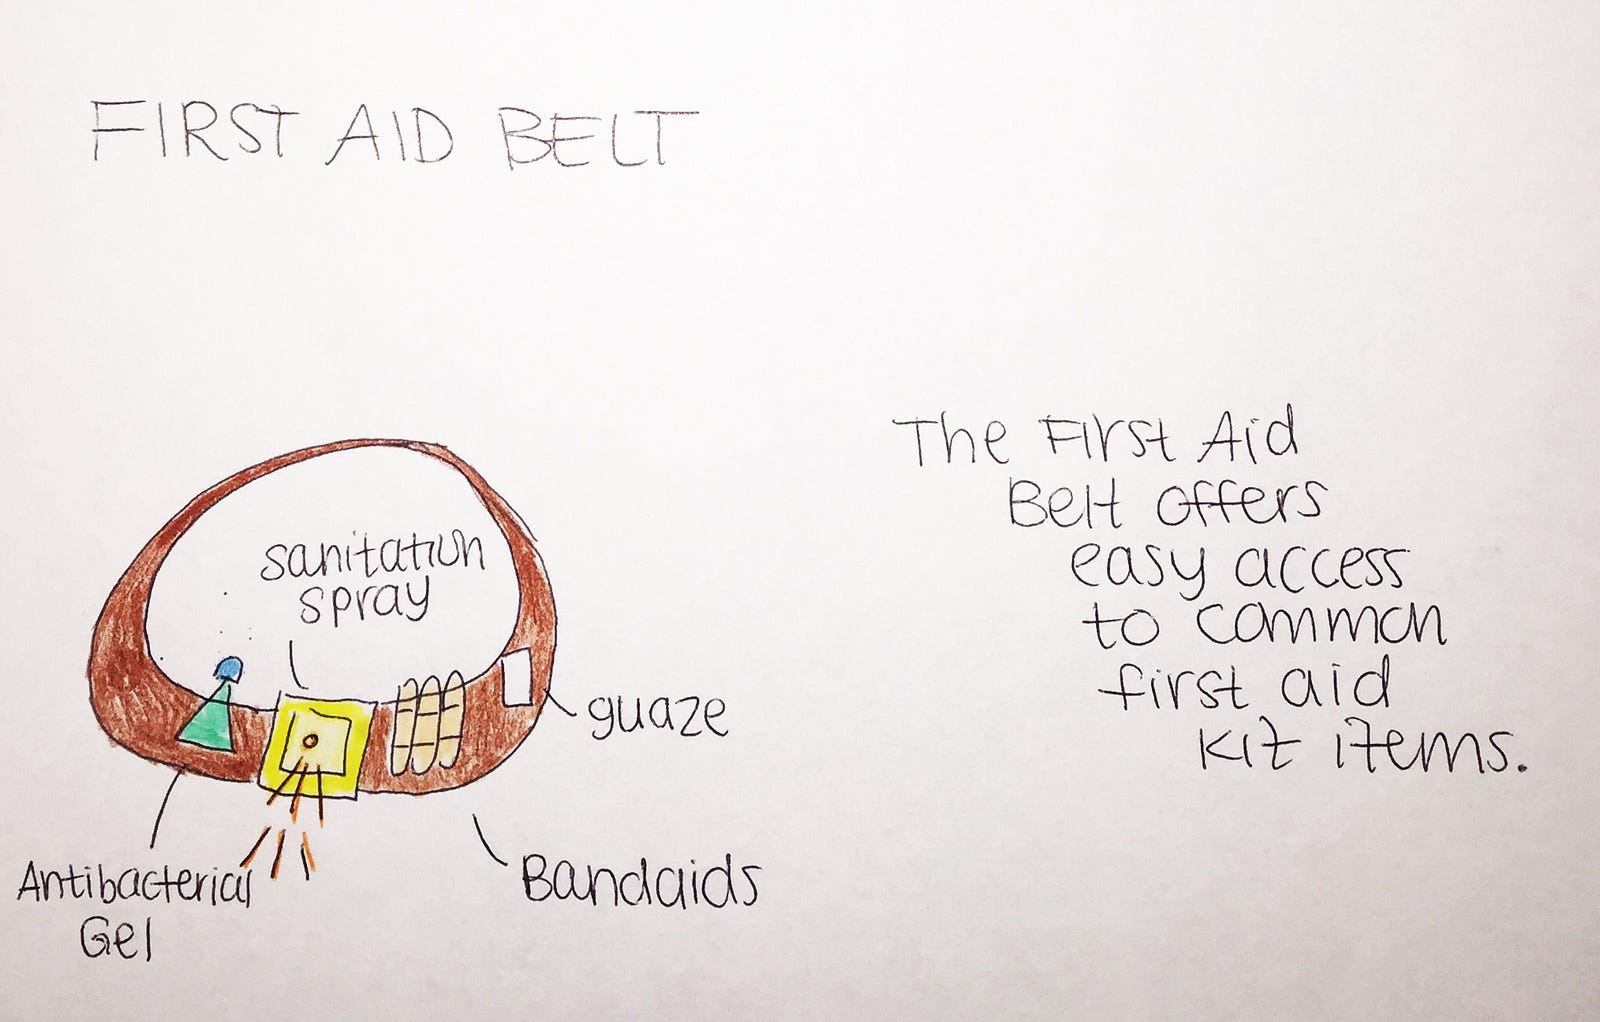 FIRST AID BELT
The First Aid
Belt offers
easy access
to common
first aid
kit items.
sanitation
spray
guaze
Antibacterial
Gel
Bandaids